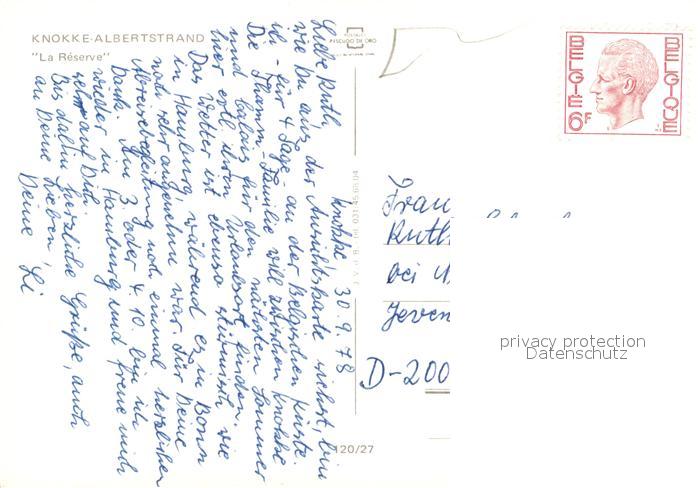 KNOKKE-ALBERTSTRAND
"La Réserve"
Knokke 30.9.78
Liebe Ruth,
wie Du aus der Ansichtskarte siehst, bin
ich - für 4 Tage - an der Belgischen Küste.
Die Thamm Familie will zwischen Knokke
und Calais für den nächsten Sommer
hier evtl. ihren Urlaubsort finden.
Das Wetter ist ebenso stürmisch wie
in Hamburg, während es in Bonn
noch sehr angenehm war. Für Deine
noch einmal herzlichen
Dank. Am 3. oder 4.10. bin ich
wieder in Hamburg und freue mich
sehr auf Dich.
Bis dahin herzliche Grüße, auch
an Deine Lieben,
Deine
PSEUDO DE ORO
120/27
BELGIE
BELGIQUE
6F
Frau
Ruth
bei
Jeven
D-200
privacy protection
Datenschutz